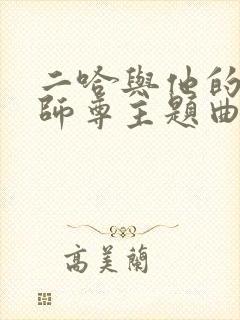 二哈與他的
師尊主題曲
高美蘭